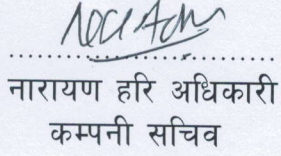 नारायण हरि अधिकारी
कम्पनी सचिव